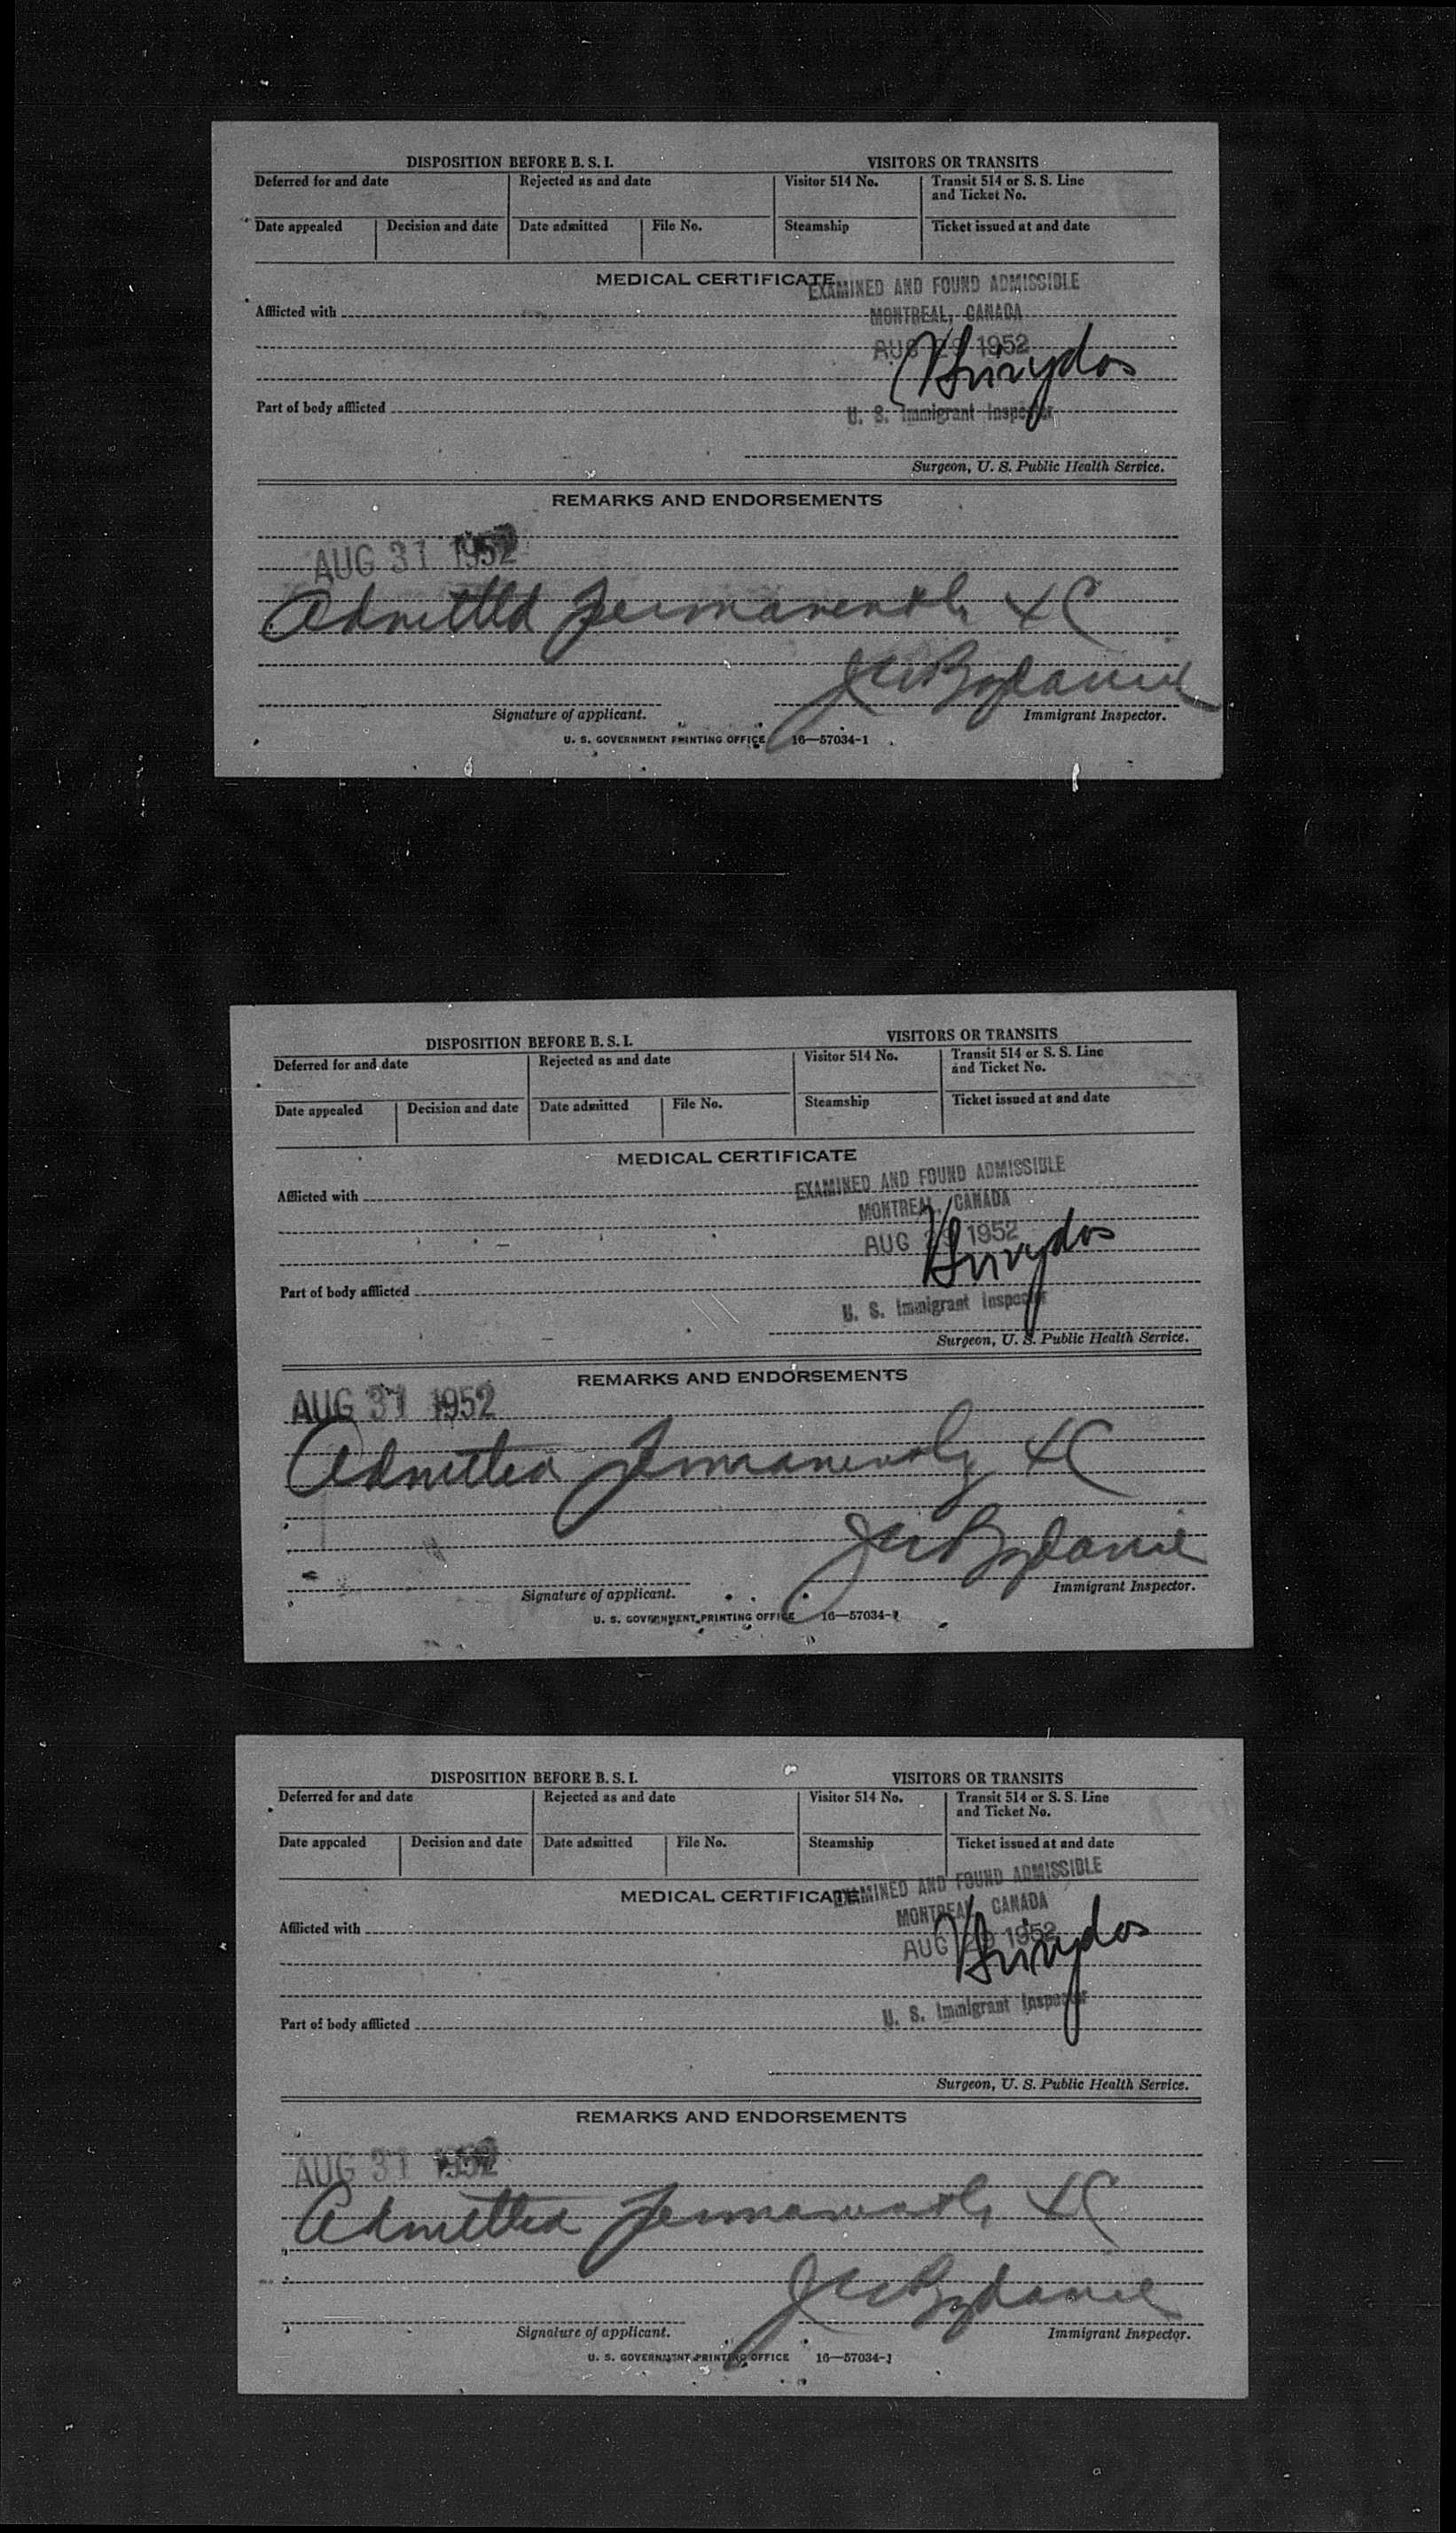 DISPOSITION BEFORE B. S. I. VISITORS OR TRANSITS
Deferred for and date Rejected as and date Visitor 514 No. Transit 514 or S. S. Line
and Ticket No.
Date appealed Decision and date Date admitted File No. Steamship Ticket issued at and date
MEDICAL CERTIFICATE
EXAMINED AND FOUND ADMISSIBLE
Afflicted with MONTREAL, CANADA
AUG 29 1952
Part of body afflicted U. S. Immigrant Inspector
Surgeon, U. S. Public Health Service.
REMARKS AND ENDORSEMENTS
AUG 31 1952
Admitted permanently
Signature of applicant. Immigrant Inspector.
U. S. GOVERNMENT PRINTING OFFICE 16—57034-1
DISPOSITION BEFORE B. S. I. VISITORS OR TRANSITS
Deferred for and date Rejected as and date Visitor 514 No. Transit 514 or S. S. Line
and Ticket No.
Date appealed Decision and date Date admitted File No. Steamship Ticket issued at and date
MEDICAL CERTIFICATE
EXAMINED AND FOUND ADMISSIBLE
Afflicted with MONTREAL, CANADA
AUG 29 1952
Part of body afflicted U. S. Immigrant Inspector
Surgeon, U. S. Public Health Service.
REMARKS AND ENDORSEMENTS
AUG 31 1952
Admitted permanently
Signature of applicant. Immigrant Inspector.
U. S. GOVERNMENT PRINTING OFFICE 16—57034-1
DISPOSITION BEFORE B. S. I. VISITORS OR TRANSITS
Deferred for and date Rejected as and date Visitor 514 No. Transit 514 or S. S. Line
and Ticket No.
Date appealed Decision and date Date admitted File No. Steamship Ticket issued at and date
EXAMINED AND FOUND ADMISSIBLE
MEDICAL CERTIFICATE
MONTREAL, CANADA
Afflicted with
AUG 29 1952
U. S. Immigrant Inspector
Part of body afflicted
Surgeon, U. S. Public Health Service.
REMARKS AND ENDORSEMENTS
AUG 31 1952
Admitted permanently
Signature of applicant. Immigrant Inspector.
U. S. GOVERNMENT PRINTING OFFICE 16—57034-1